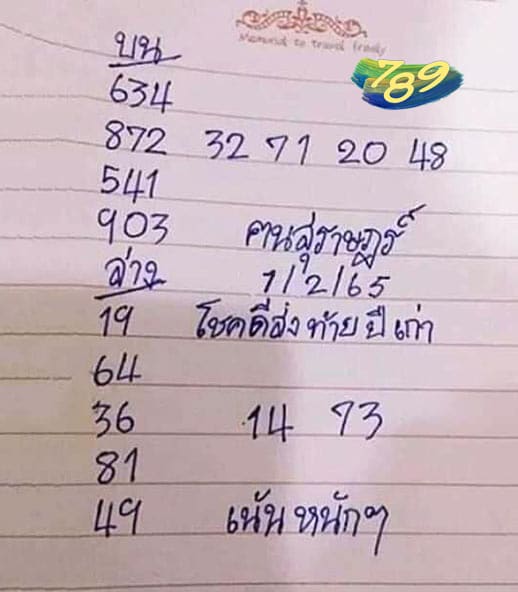 Memorial to travel freely
789
บน
634
872 32 71 20 48
541
903 ฅนสุราษฎร์
ล่าง 1/2/65
19 โชคดีส่งท้ายปีเก่า
64
36 14 73
81
49 เน้นหนักๆ